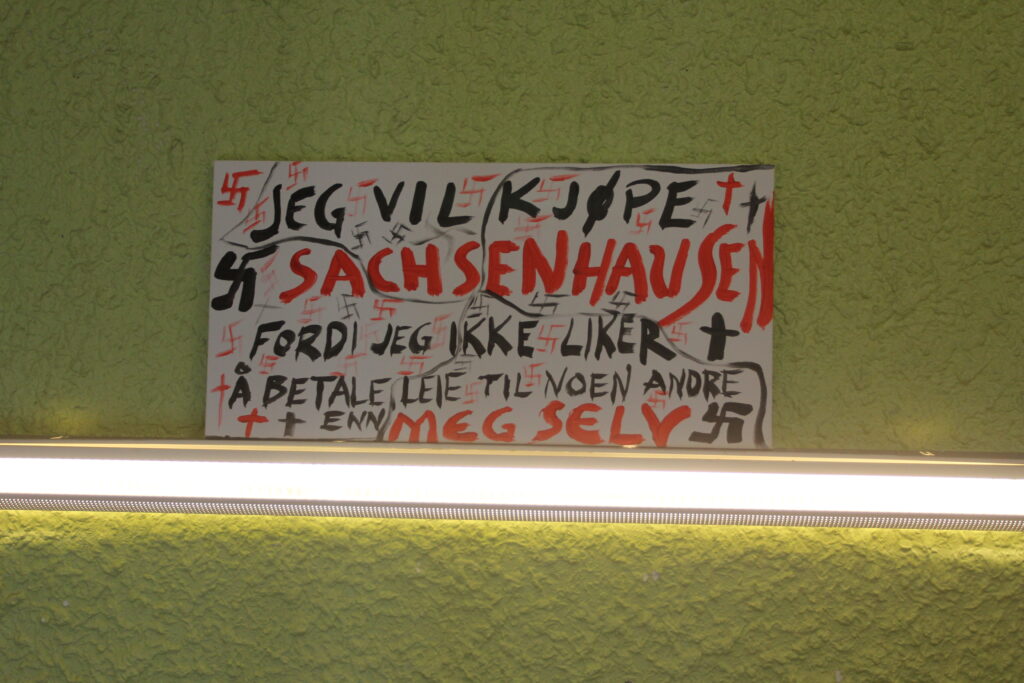 JEG VIL KJØPE
SACHSENHAUSEN
FORDI JEG IKKE LIKER
Å BETALE LEIE TIL NOEN ANDRE
ENN MEG SELV